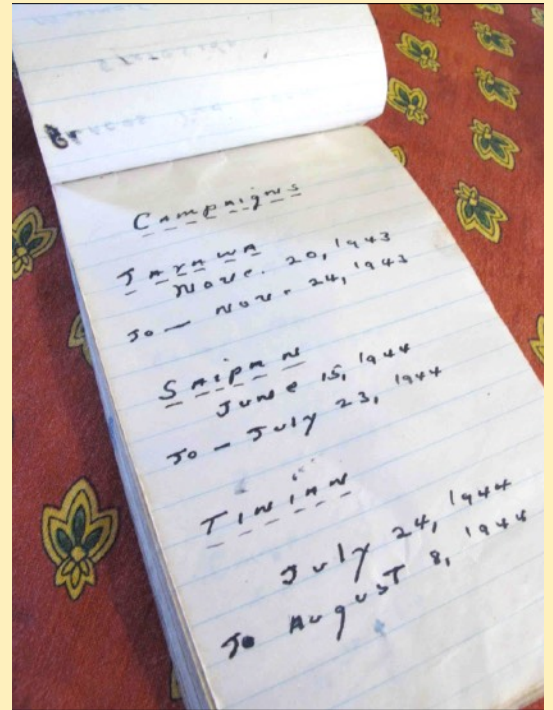 Campaigns
TARAWA
Nove. 20, 1943
To — Nov. 24, 1943
SAIPAN
June 15, 1944
To — July 23, 1944
TINIAN
July 24, 1944
To AuguST 8, 1944